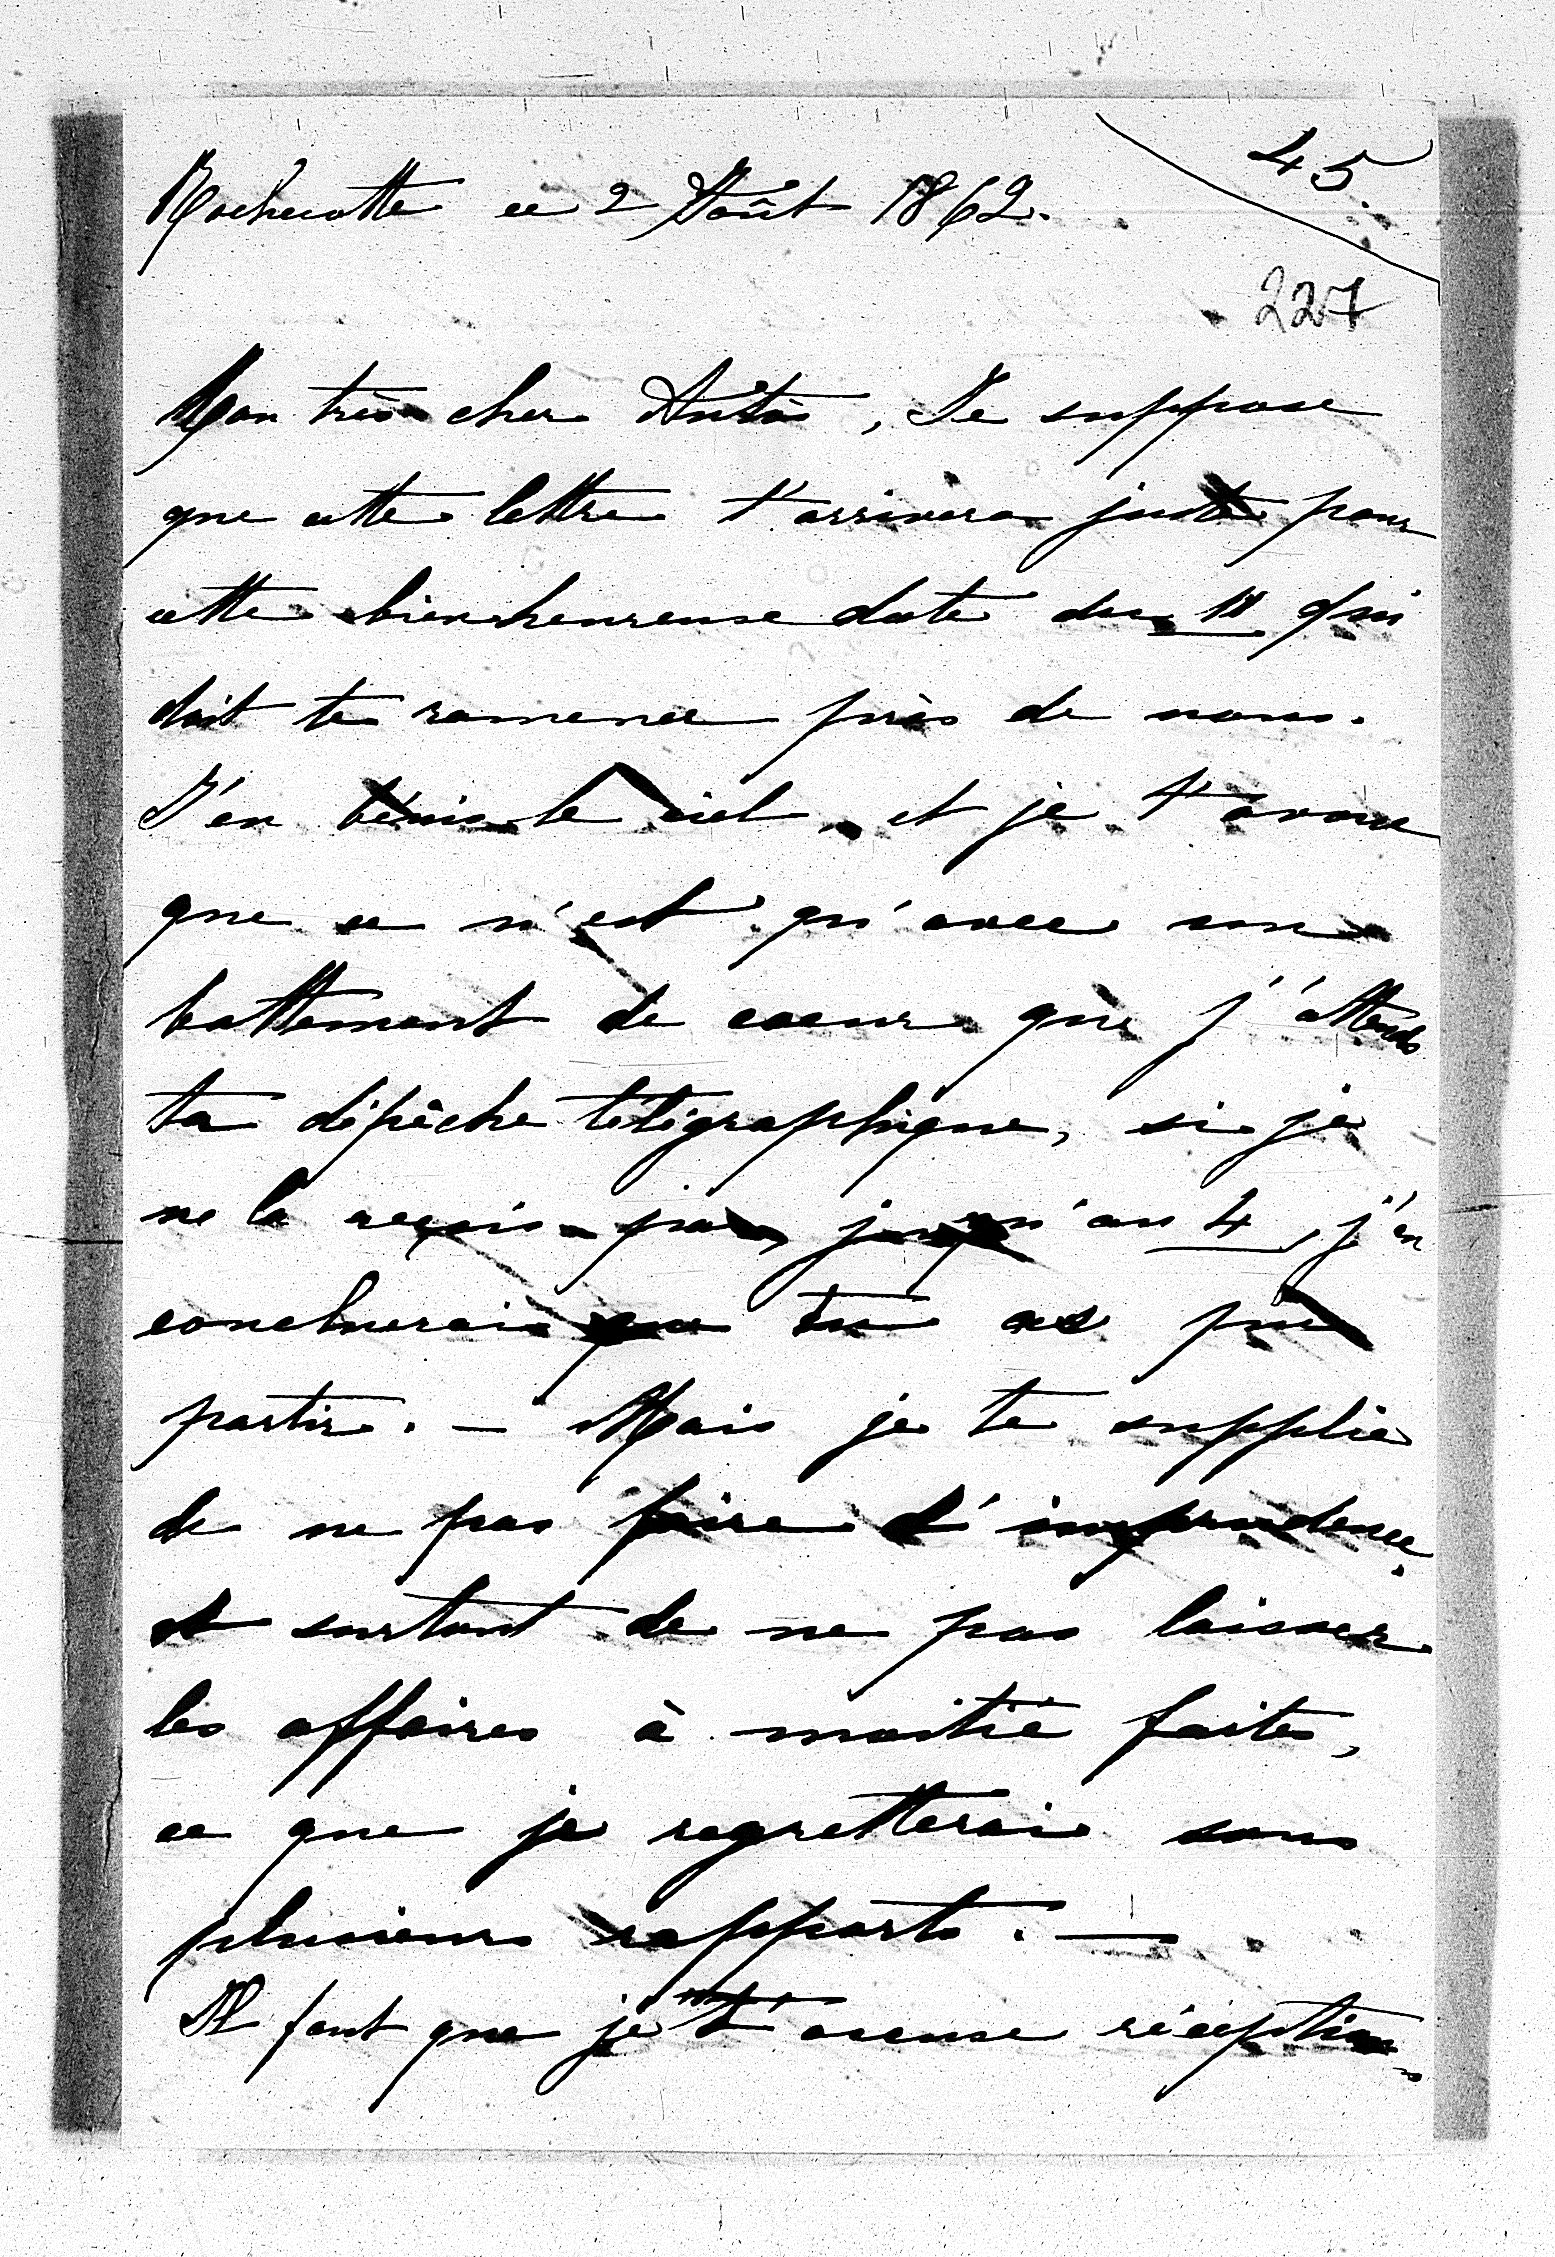 45.
Rochecotte ce 2 Août 1862.
227
Mon très cher Antòs, Je suppose
que cette lettre t'arrivera juste pour
cette bienheureuse date du 11 qui
doit te ramener près de nous.
J'en bénis le ciel, et je t'avoue
que ce n'est qu'avec un
battement de coeur que j'attends
ta dépêche télégraphique, si je
ne la reçois pas jusqu'au 4, j'en
conclnerais que tu as pu
partir. - Mais je te supplie
de ne pas faire d'imprudence,
et surtout de ne pas laisser
les affaires à moitié faites,
ce que je regretterais sous
plusieurs rapports. —
Il faut que je t'accuse réception